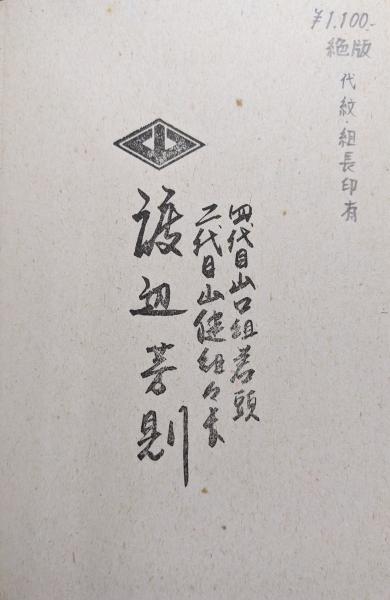 ¥1,100-
絶版
代紋・組長印有
四代目山口組若頭
二代目山健組々長
渡辺芳則